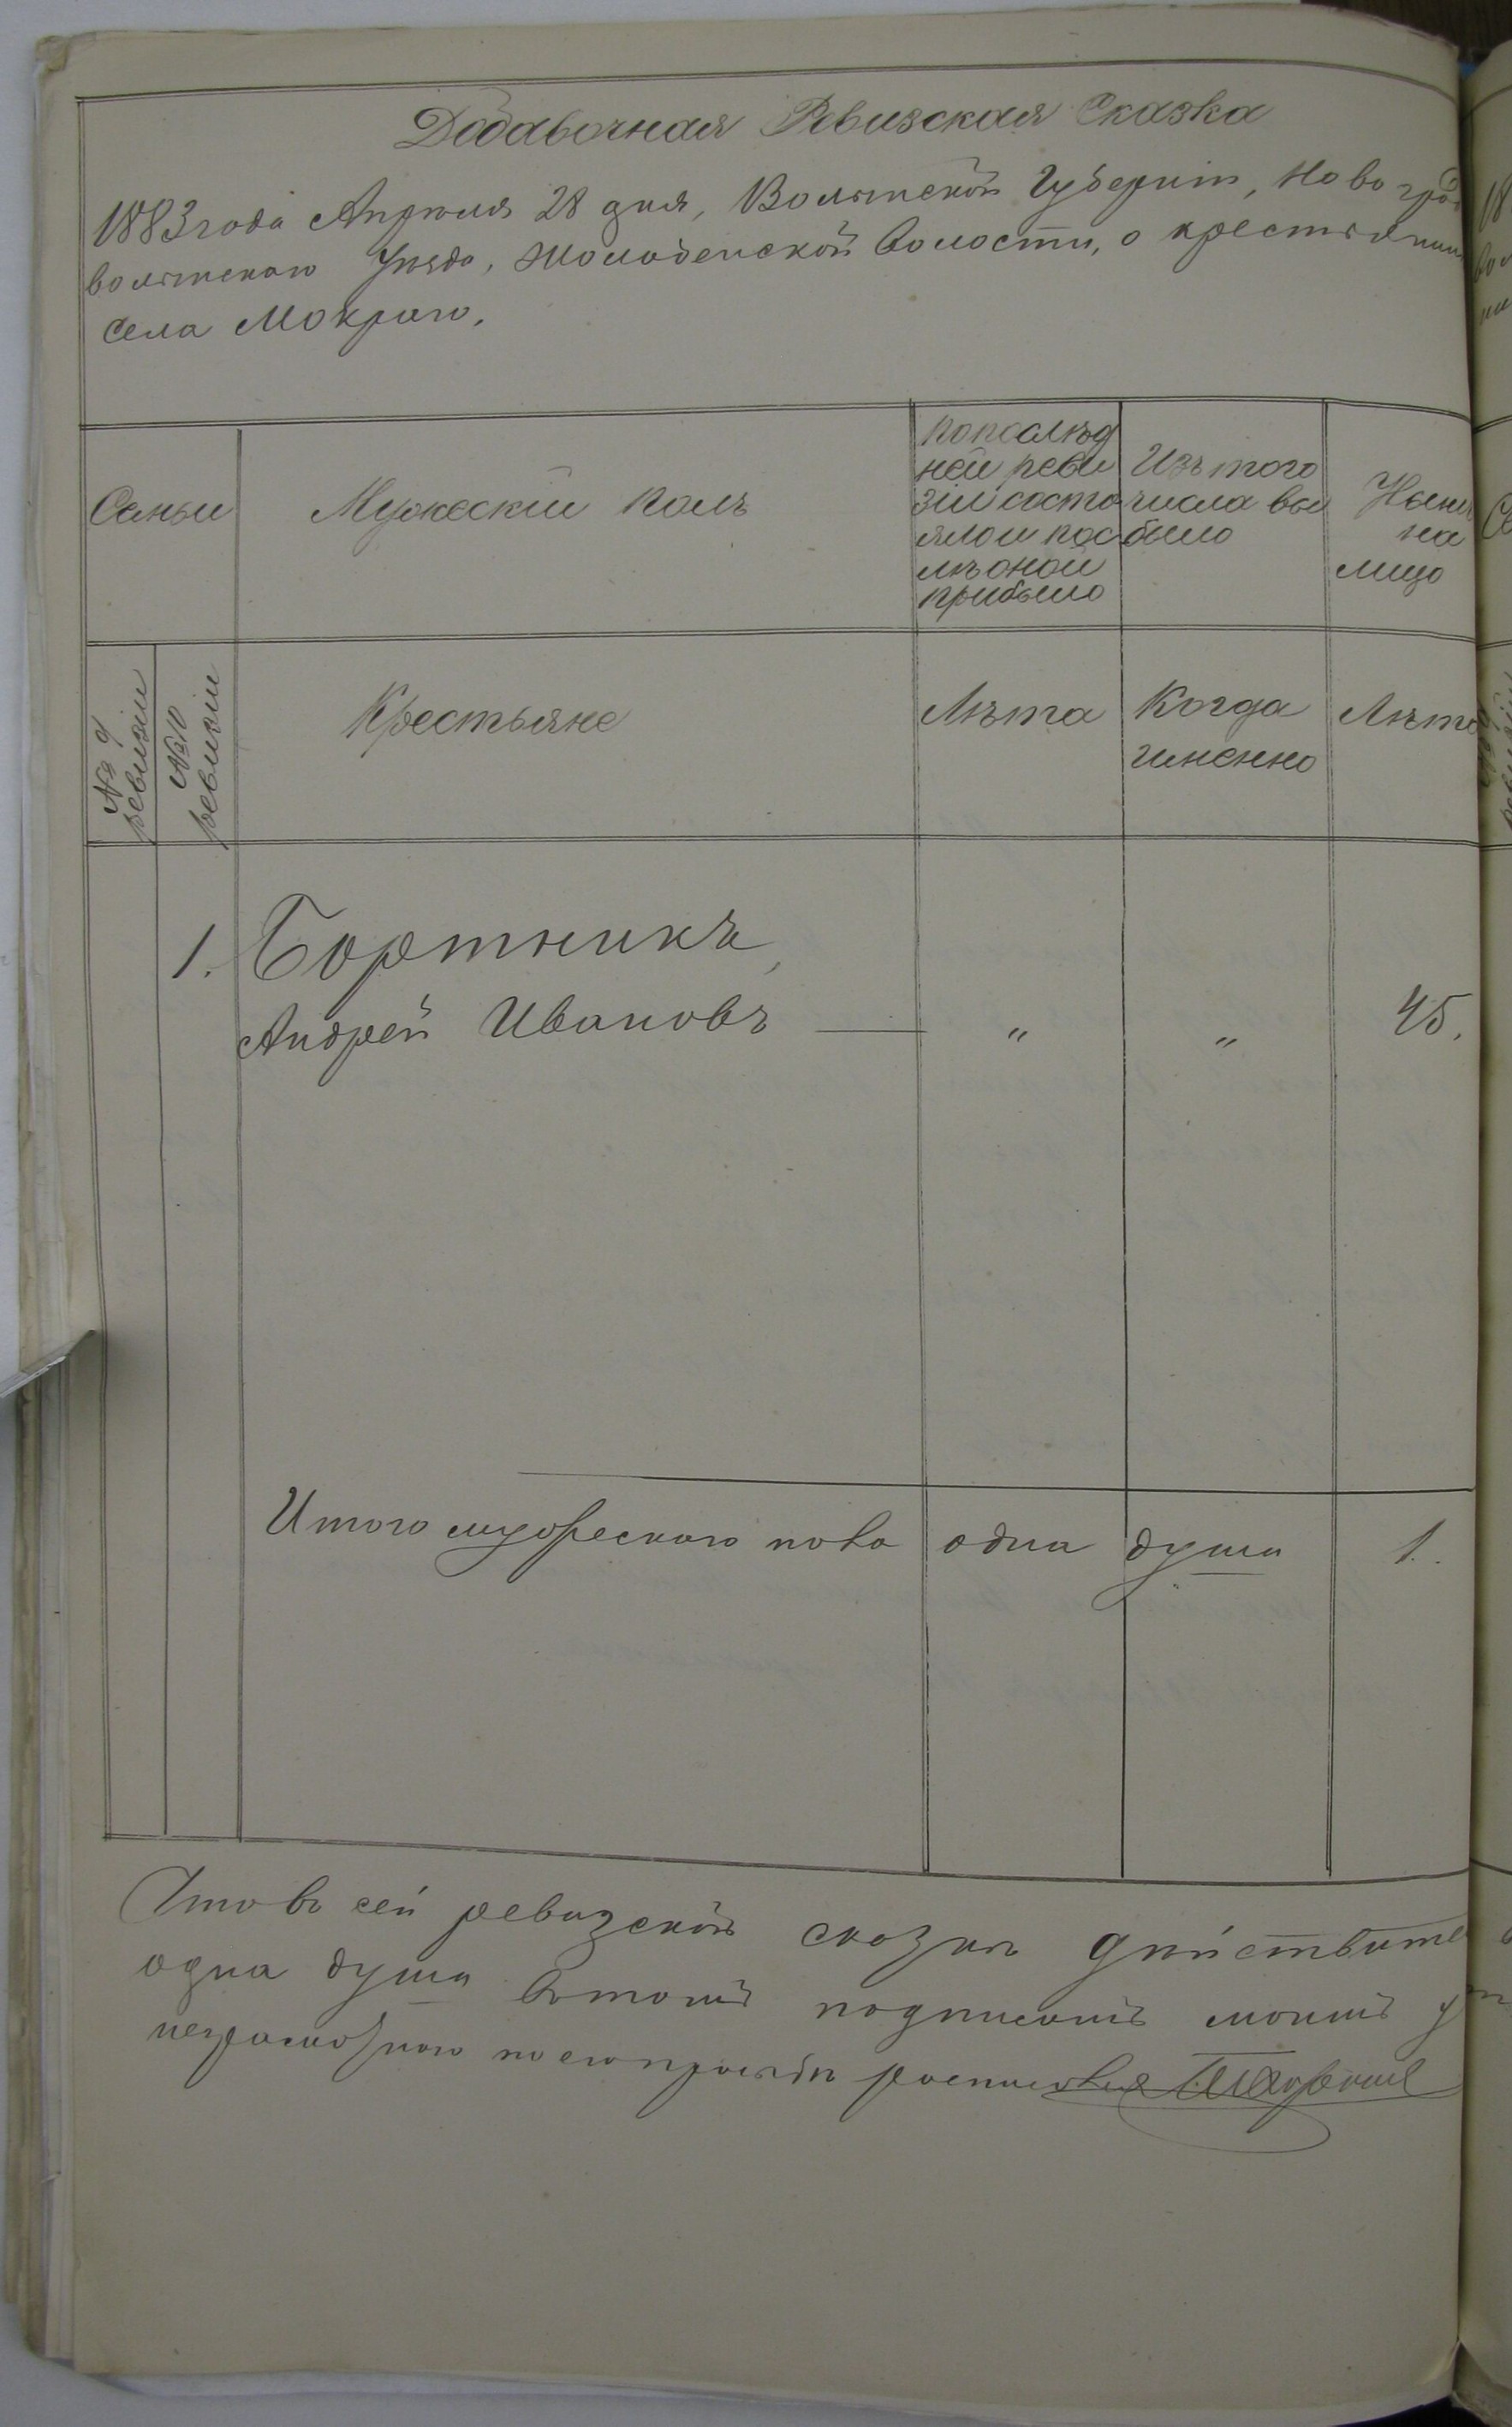 Додавочная Ревизская Сказка
1883 года Апреля 28 дня, Волынской Губернии, Новоград
волынскаго Уезда, Жолобенской волости, о крестьянин
села Мокраго.
Семьи
Мужескiй полъ
попослѣд
ней реви
зiи состо
яло и пос
лѣ оной
прибыло
Изъ того
числа вы
было
Нынѣ
на
лицо
№ 9
ревизiи
№ 10
ревизiи
Крестьяне
Лѣта
Когда
именно
Лѣта
1. Бортникъ,
Андрей Ивановъ — " " 45.
Итого мужескаго пола одна душа 1.
Что въ сей ревизской сказкѣ дѣйствите
одна душа въ томъ подписомъ моимъ у
неграмотнаго по его прозьбѣ росписался